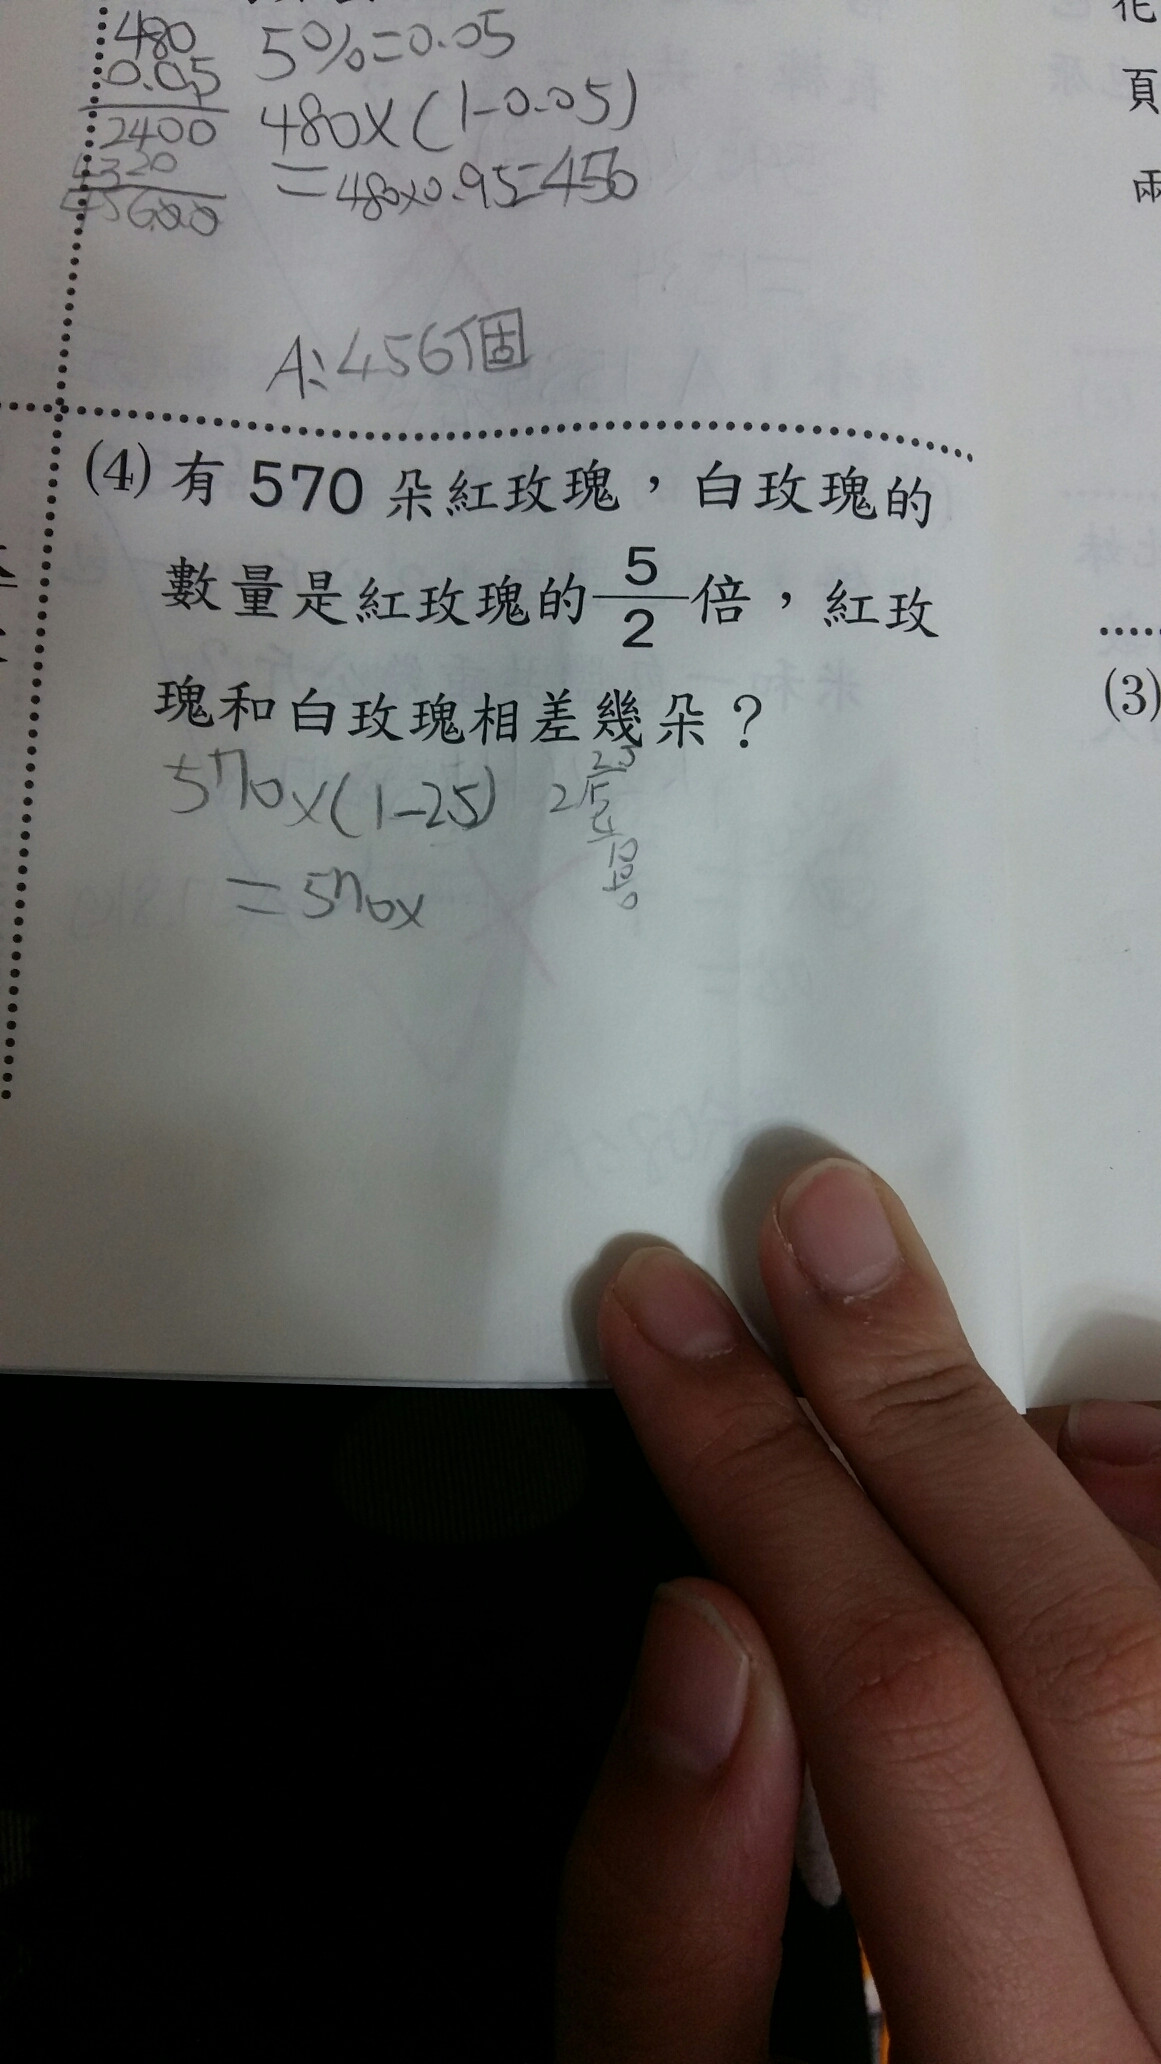 480
0.05
2400
4320
456.00
5%=0.05
480×(1-0.05)
=480×0.95=456
A:456個
(4) 有 570 朵紅玫瑰，白玫瑰的
數量是紅玫瑰的 5/2 倍，紅玫
瑰和白玫瑰相差幾朵？
570×(1-25)
=570×
25
2 5
4
10
10
0
頁
兩
(3)